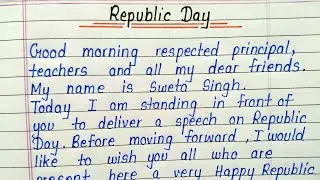 Republic Day
Good morning respected principal,
teachers and all my dear friends.
My name is Sweta Singh.
Today I am standing in front of
you to deliver a speech on Republic
Day. Before moving forward, I would
like to wish you all who are
present here a very Happy Republic